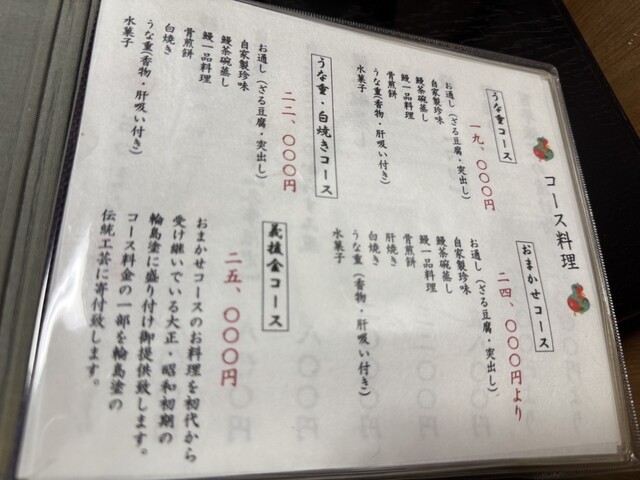 コース料理
うな重コース
一九、〇〇〇円
お通し（ざる豆腐・突出し）
自家製珍味
鰻茶碗蒸し
鰻一品料理
骨煎餅
うな重（香物・肝吸い付き）
水菓子
おまかせコース
二四、〇〇〇円より
お通し（ざる豆腐・突出し）
自家製珍味
鰻茶碗蒸し
鰻一品料理
骨煎餅
肝焼き
白焼き
うな重（香物・肝吸い付き）
水菓子
うな重・白焼きコース
二二、〇〇〇円
お通し（ざる豆腐・突出し）
自家製珍味
鰻茶碗蒸し
鰻一品料理
骨煎餅
白焼き
うな重（香物・肝吸い付き）
水菓子
義援金コース
二五、〇〇〇円
おまかせコースのお料理を初代から
受け継いでいる大正・昭和初期の
輪島塗に盛り付け御提供致します。
コース料金の一部を輪島塗の
伝統工芸に寄付致します。